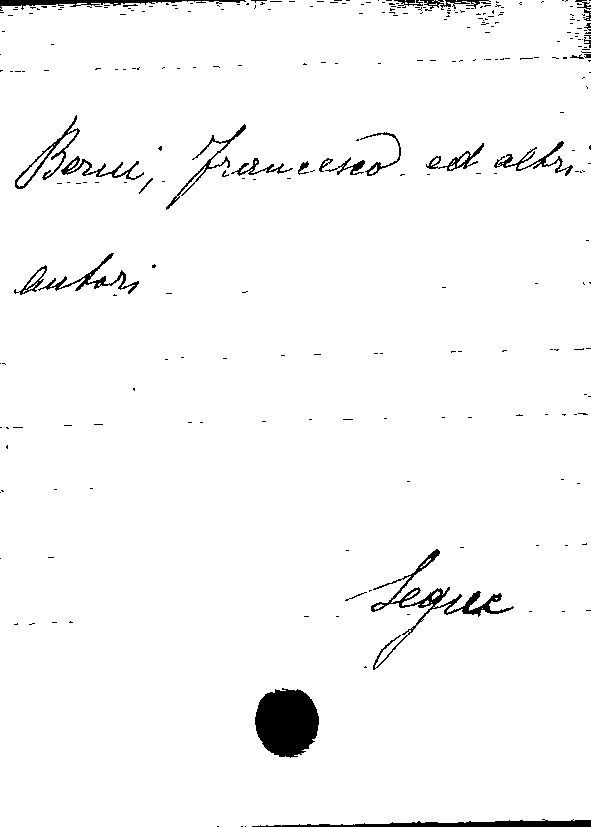 Berni, Francesco ed altri
autori
Segue